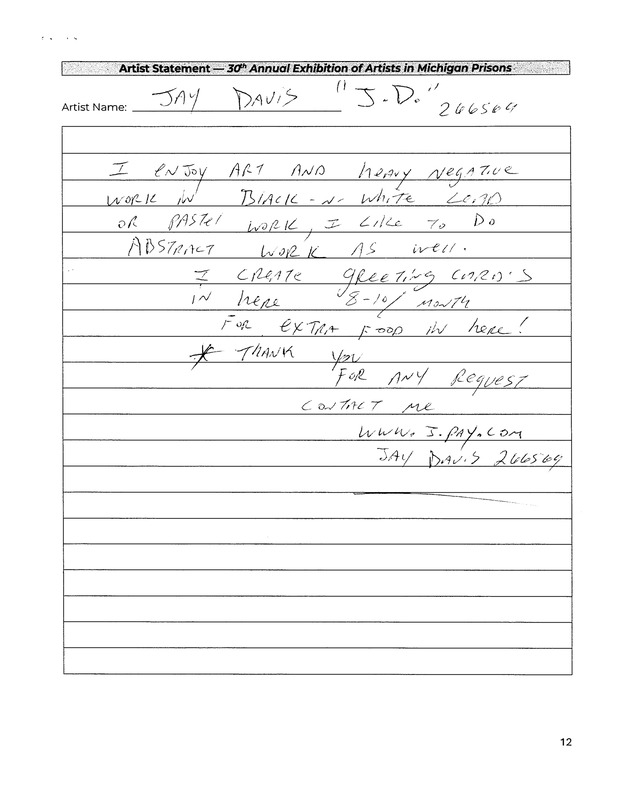 Artist Statement — 30th Annual Exhibition of Artists in Michigan Prisons
Artist Name: JAY DAVIS "J.D." 266569
I ENJOY ART AND heavy NEGATIVE
WORK IN BLACK-N-White LEAD
OR PASTEL WORK, I LIKE TO DO
ABSTRACT WORK AS well.
I CREATE GREETING CARD'S
IN here 8-10/MONTH
FOR EXTRA FOOD IN here!
* THANK you
FOR ANY REQUEST
CONTACT ME
WWW.J.PAY.COM
JAY DAVIS 266569
12